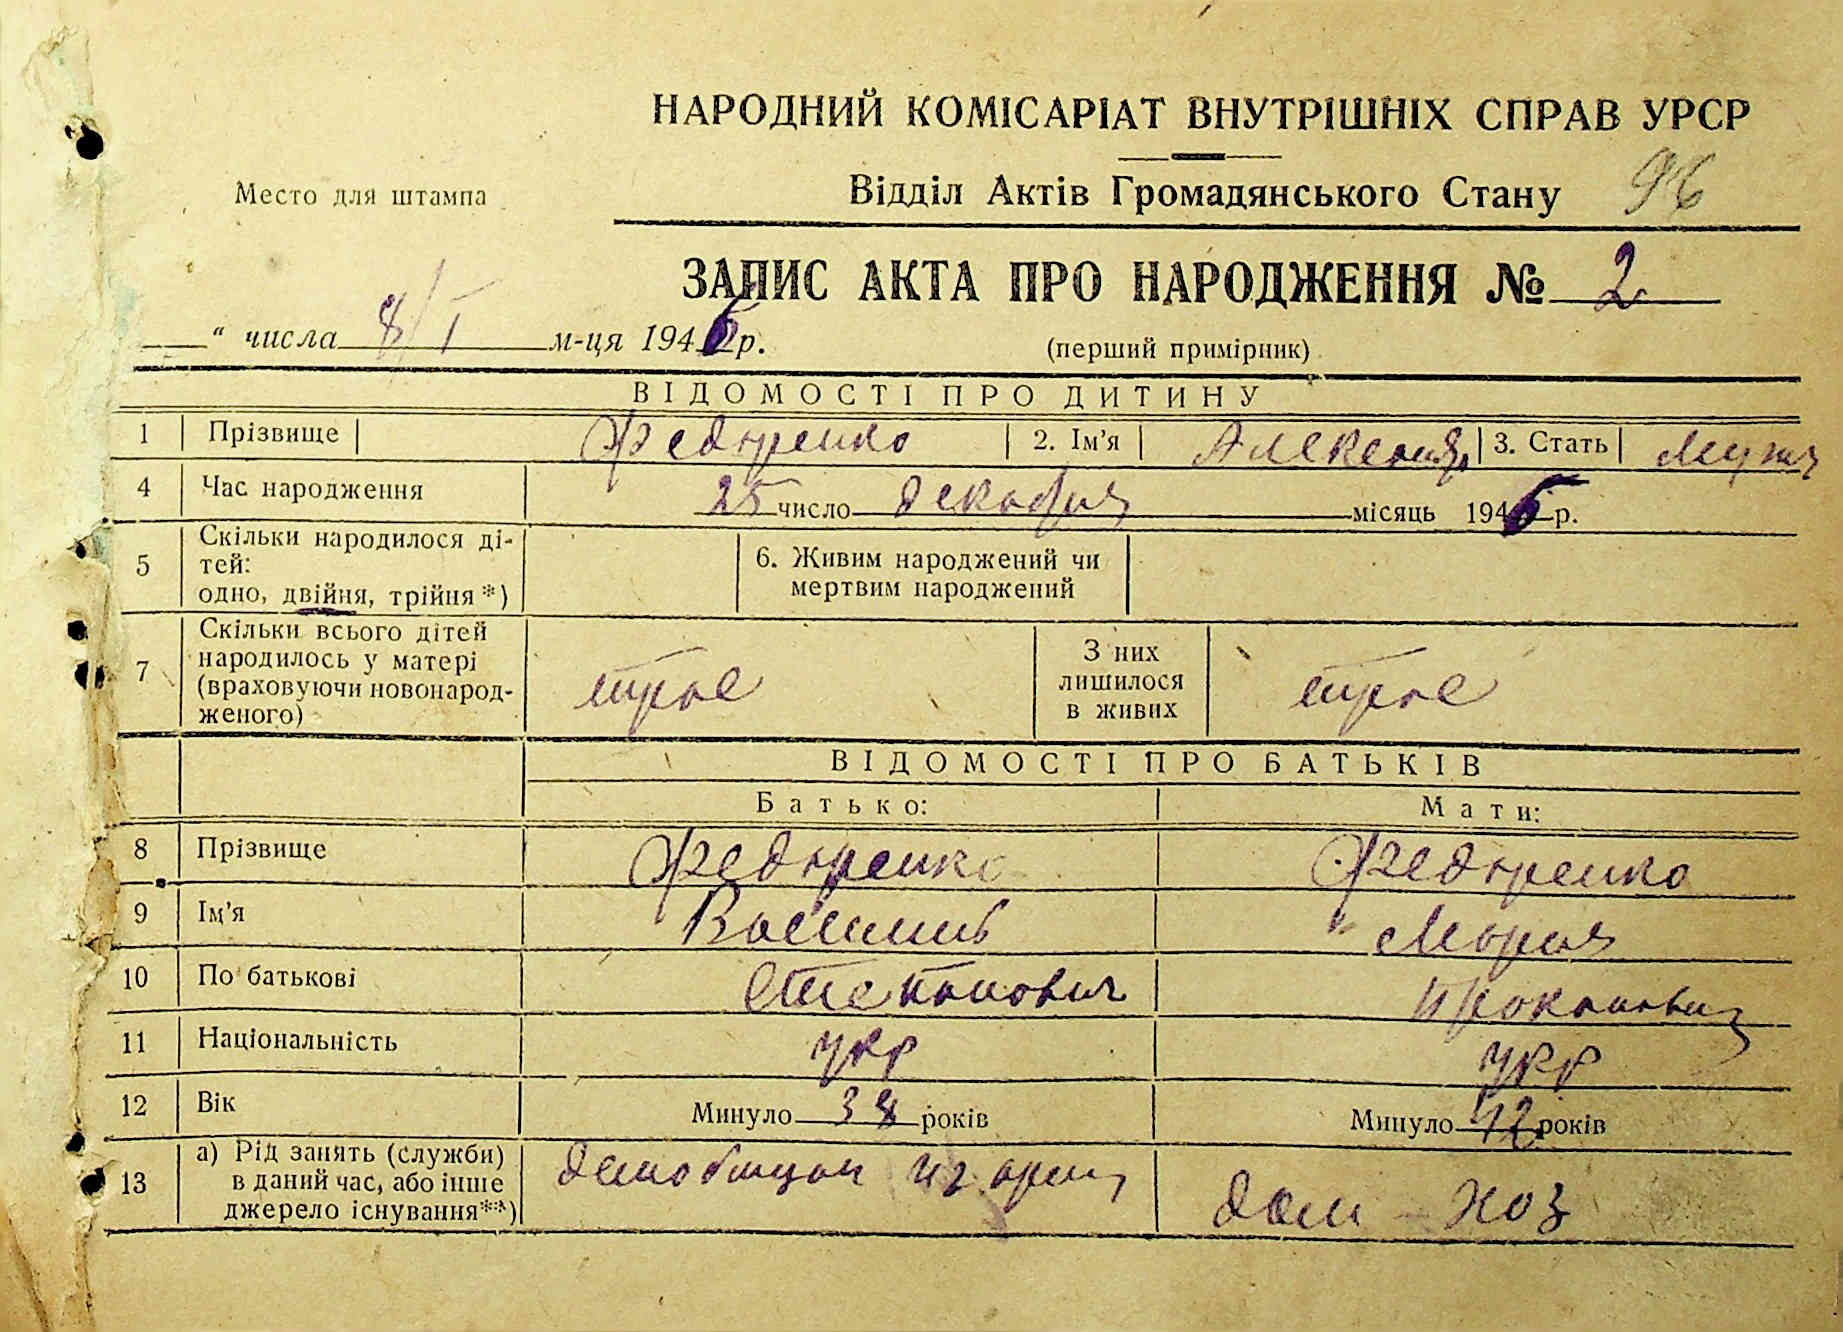 НАРОДНИЙ КОМІСАРІАТ ВНУТРІШНІХ СПРАВ УРСР
Место для штампа
Відділ Актів Громадянського Стану 96
ЗАПИС АКТА ПРО НАРОДЖЕННЯ № 2
“ числа 8/I м-ця 1946 р.
(перший примірник)
ВІДОМОСТІ ПРО ДИТИНУ
1 Прізвище Федоренко 2. Ім'я 3. Стать Муж
4 Час народження 25 число декабря місяць 1945 р.
5 Скільки народилося ді-
тей:
одно, двійня, трійня*)
6. Живим народжений чи
мертвим народжений
7 Скільки всього дітей
народилось у матері
(враховуючи новонарод-
женого)
трое
З них
лишилося
в живих
трое
ВІДОМОСТІ ПРО БАТЬКІВ
Батько: Мати:
8 Прізвище Федоренко Федоренко
9 Ім'я Василий Мария
10 По батькові Степанович
11 Національність укр укр
12 Вік Минуло 38 років Минуло 42 років
13 а) Рід занять (служби)
в даний час, або інше
джерело існування**)
из арми
дом-хоз